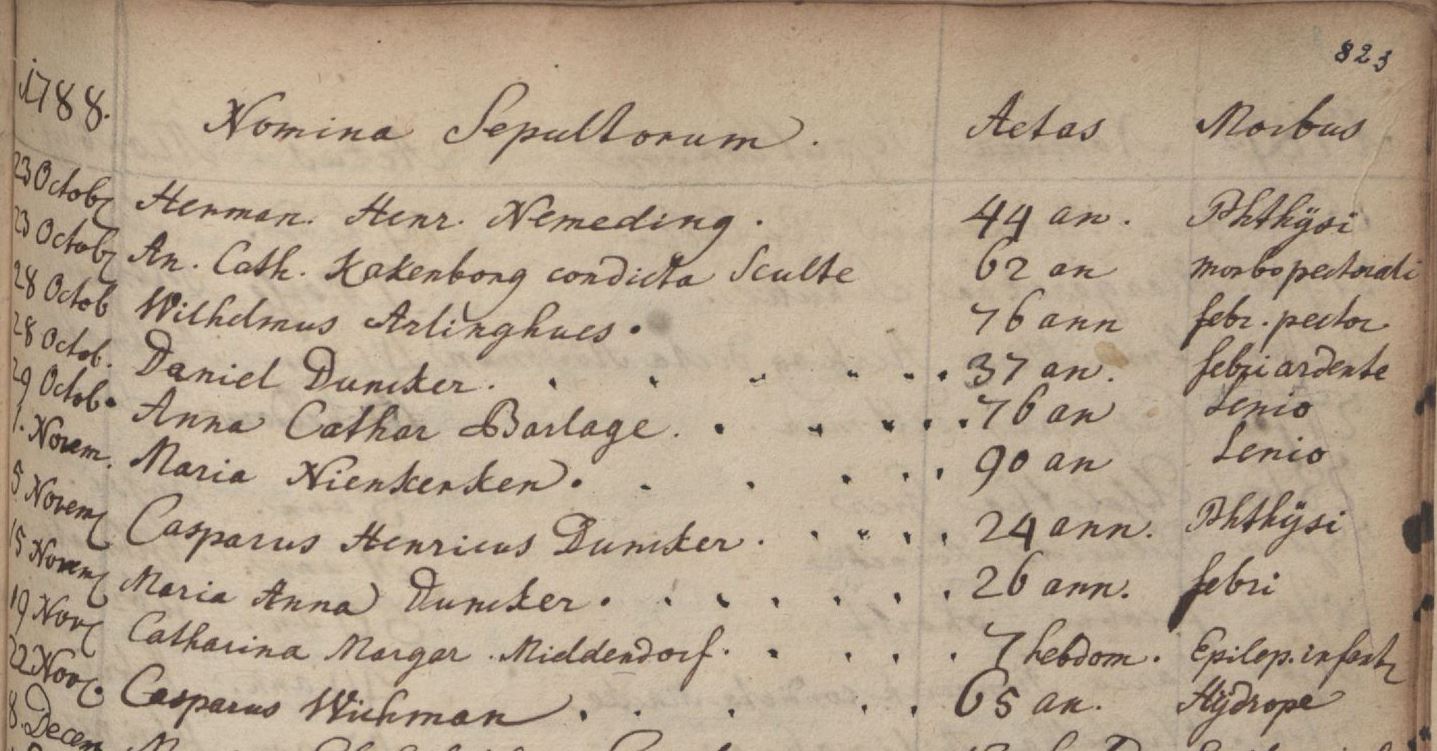 823
1788. Nomina Sepultorum. Aetas Morbus
23 Octob Herman. Henr. Nemeding. 44 an. Phthÿsi
23 Octob An. Cath. Kakenborg condicta Sculte 62 an morbo pectorali
28 Octob Wilhelmus Arlinghues. 76 ann febr. pector
28 Octob. Daniel Duncker. 37 an. febri ardente
29 Octob. Anna Cathar Barlage. 76 an Senio
1. Novem. Maria Nienkerken. 90 an Senio
5 Novem Casparus Henricus Duncker. 24 ann. Phthÿsi
15 Novem Maria Anna Duncker. 26 ann. febri
19 Nov Catharina Margar. Middendorf. 7 hebdom. Epilep. infant
22 Nov. Casparus Wichman 65 an. Hÿdrope
8 Decem